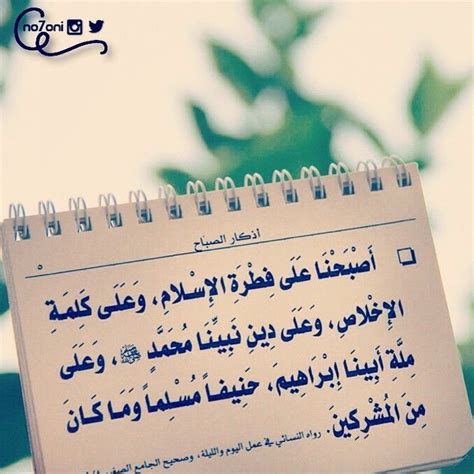 no7oni
أذكار الصباح
٥
❑ أَصْبَحْنَا عَلَى فِطْرَةِ الإِسْلامِ، وَعَلَى كَلِمَةِ
الإِخْلاصِ، وَعَلَى دِينِ نَبِيِّنَا مُحَمَّدٍ ﷺ، وَعَلَى
مِلَّةِ أَبِينَا إِبْرَاهِيمَ، حَنِيفاً مُسْلِماً وَمَا كَانَ
مِنَ المُشْرِكِينَ. رواه النسائي في عمل اليوم والليلة، وصحيح الجامع الصغير